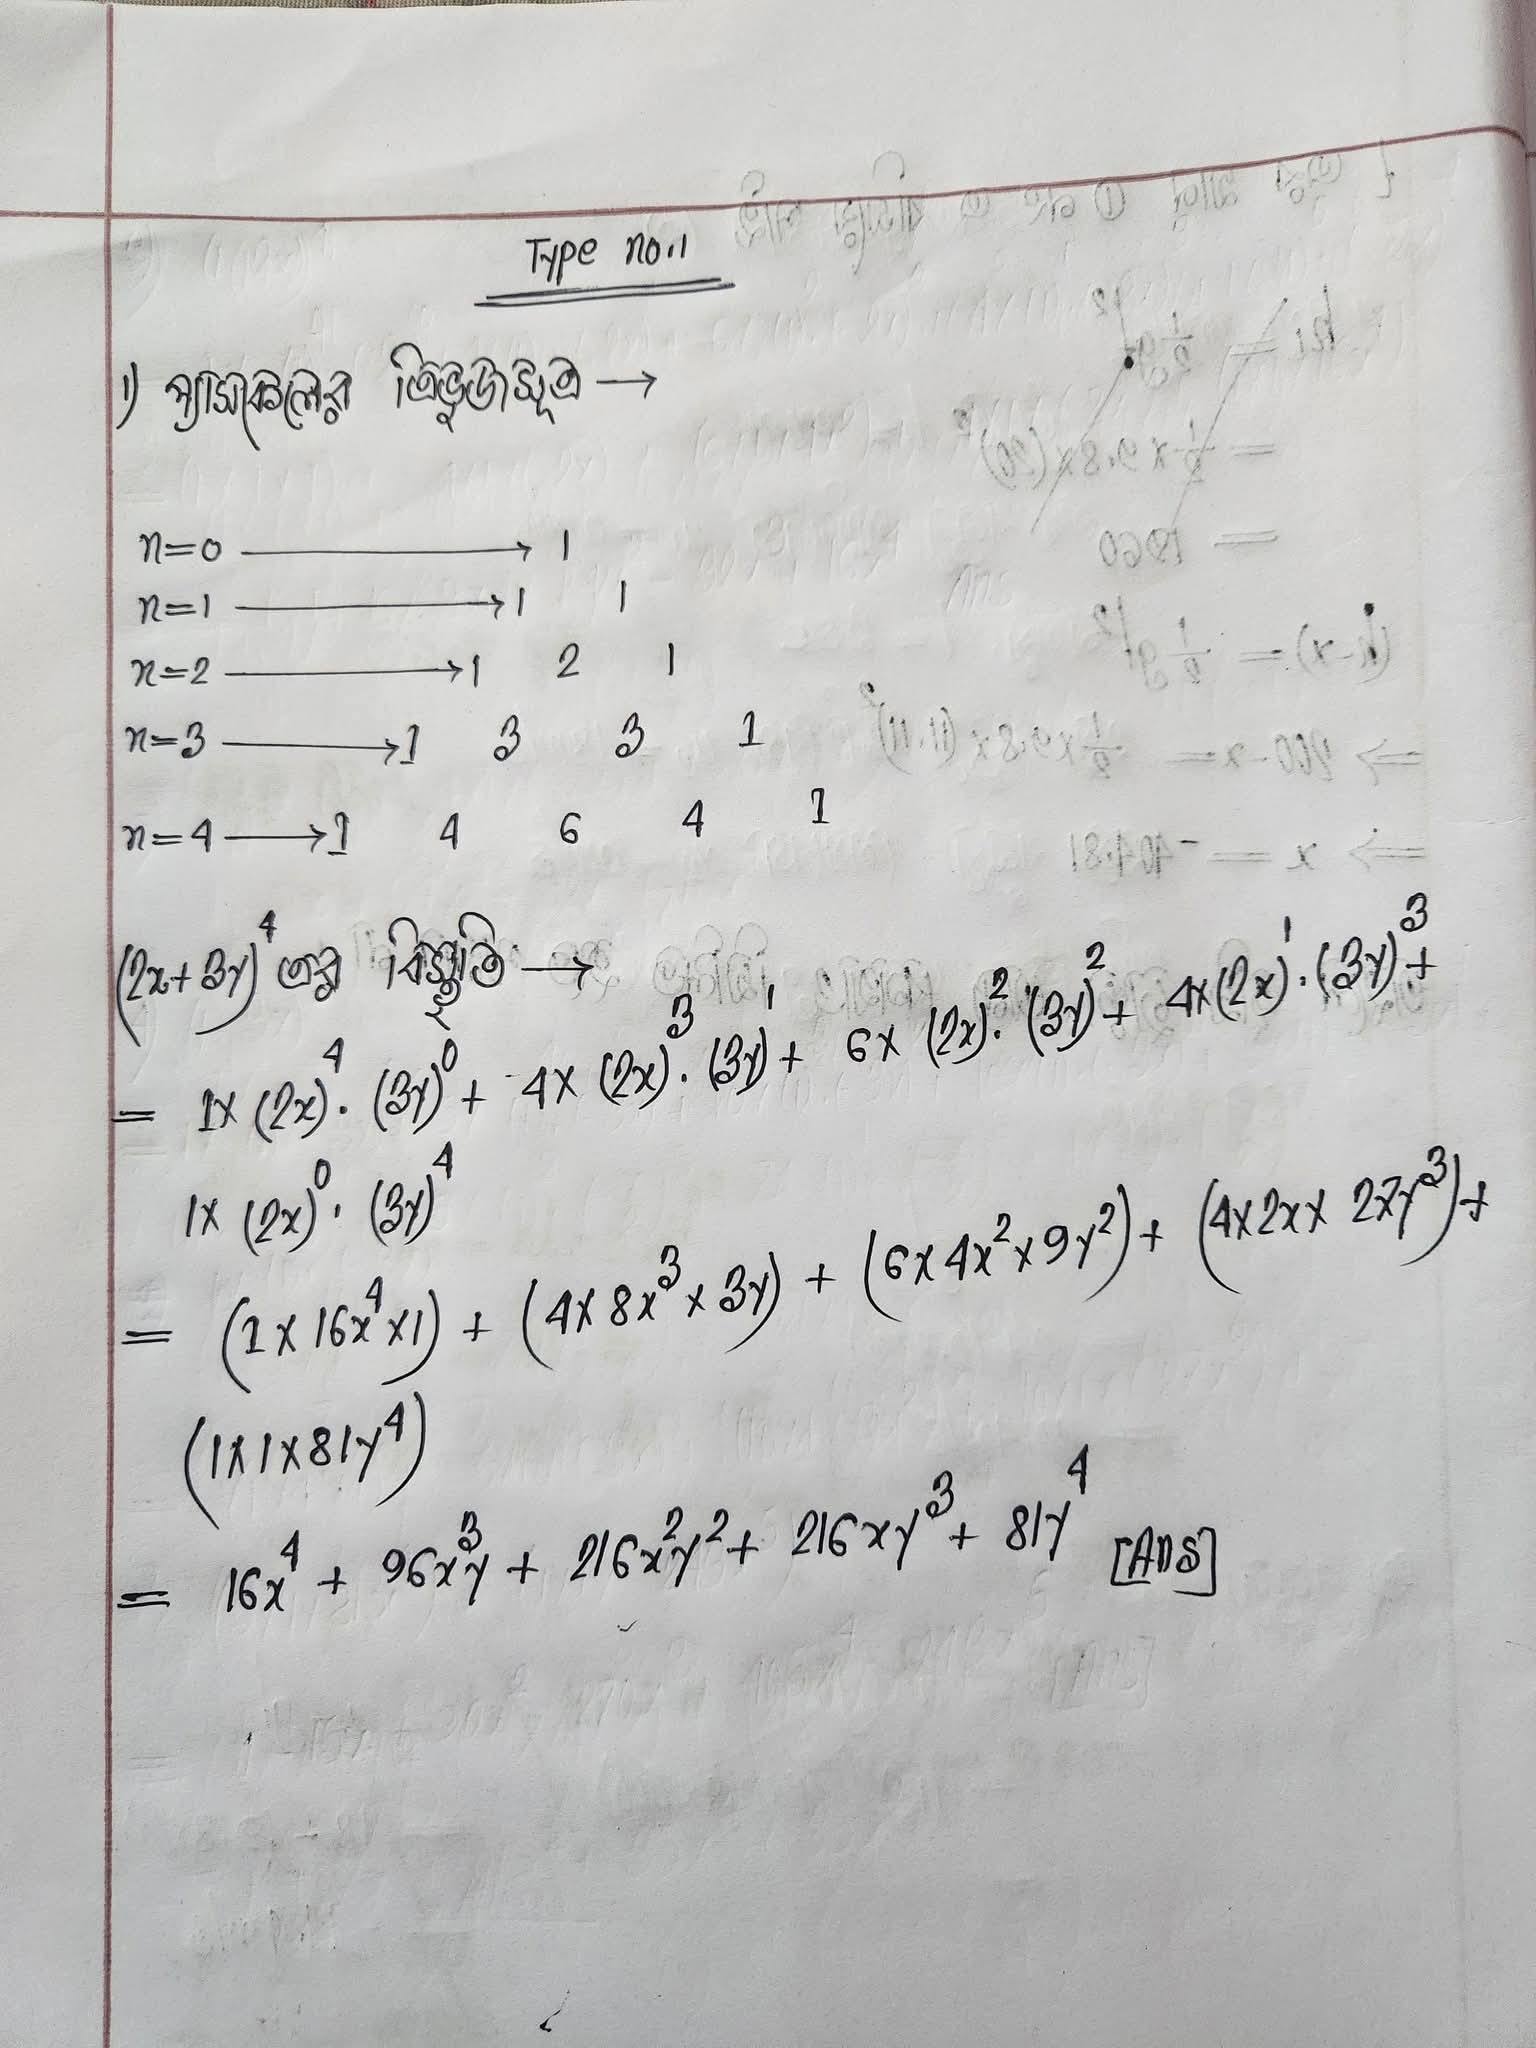 Type no.1
1) প্যাসকেলের ত্রিভুজসূত্র →
n=0 → 1
n=1 → 1 1
n=2 → 1 2 1
n=3 → 1 3 3 1
n=4 → 1 4 6 4 1
(2x+3y)⁴ এর বিস্তৃতি →
= 1× (2x)⁴. (3y)⁰ + 4× (2x)³. (3y)¹ + 6× (2x)². (3y)² + 4×(2x)¹. (3y)³ +
1× (2x)⁰. (3y)⁴
= (1×16x⁴×1) + (4×8x³×3y) + (6×4x²×9y²) + (4×2x× 27y³) +
(1×1×81y⁴)
= 16x⁴ + 96x³y + 216x²y² + 216xy³ + 81y⁴ [Ans]